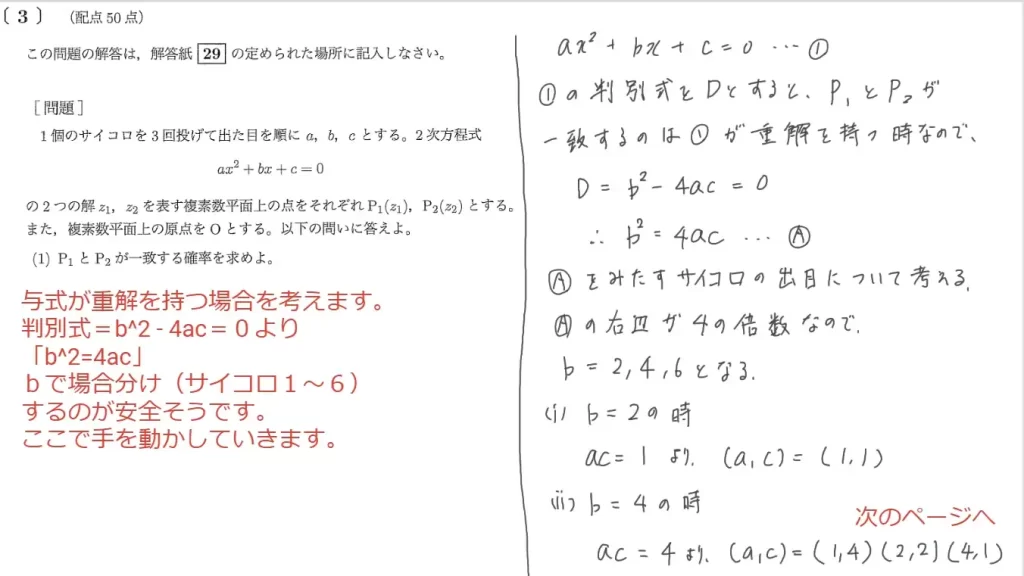 〔 3 〕 (配点 50 点)
この問題の解答は，解答紙 29 の定められた場所に記入しなさい。
［問題］
1 個のサイコロを 3 回投げて出た目を順に a，b，c とする。2 次方程式
ax²+bx+c=0
の 2 つの解 z₁，z₂ を表す複素数平面上の点をそれぞれ P₁(z₁)，P₂(z₂) とする。
また，複素数平面上の原点を O とする。以下の問いに答えよ。
(1) P₁ と P₂ が一致する確率を求めよ。
与式が重解を持つ場合を考えます。
判別式＝b^2 - 4ac＝０より
「b^2=4ac」
ｂで場合分け（サイコロ１～６）
するのが安全そうです。
ここで手を動かしていきます。
ax² + bx + c = 0 … ①
①の判別式をDとすると、P₁とP₂が
一致するのは①が重解を持つ時なので、
D = b² - 4ac = 0
∴ b² = 4ac … Ⓐ
Ⓐをみたすサイコロの出目について考える。
Ⓐの右辺が4の倍数なので、
b = 2, 4, 6 となる。
(i) b = 2 の時
ac = 1 より、(a, c) = (1, 1)
(ii) b = 4 の時
次のページへ
ac = 4 より、(a, c) = (1, 4) (2, 2) (4, 1)